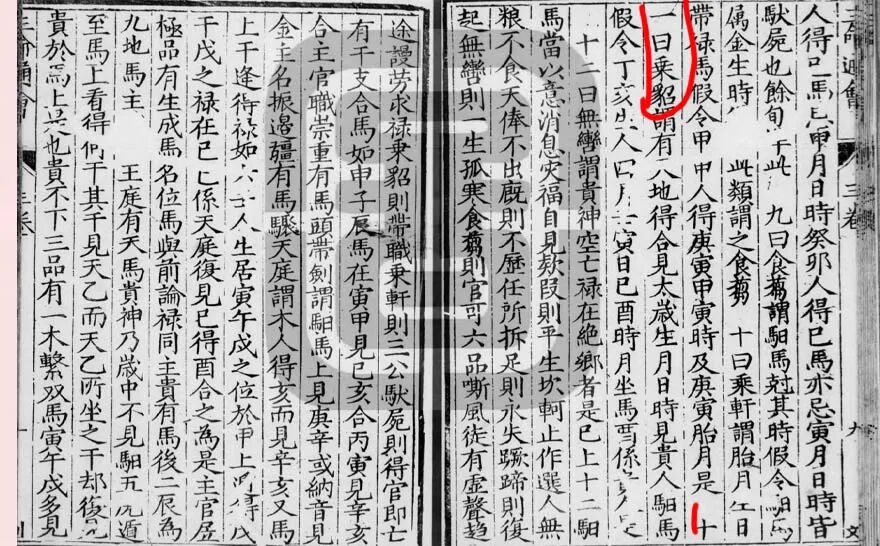 三命通會 三卷 九 文
人得巳馬忌申月日時癸卯人得巳馬亦忌寅月日時皆
馱屍也餘旬此 九曰食蒭謂馹馬尅其時假令馹
属金生時 此類謂之食蒭 十曰乘軒謂胎月日
帶禄馬假令甲申人得庚寅甲寅時及庚寅胎月是 十
一曰乘貂謂有地得合見太歲生月日時見貴人馹馬
假令丁亥生人四月壬寅日巳酉時月坐馬係
十二曰無轡謂貴神空亡禄在絶鄉者是巳上十二馹
馬當以意消息灾福自見款段則平生坎軻止作選人無
粮不食天俸不出廐則不歷任所拆足則永失蹶蹄則復
起無轡則一生孤寒食蒭則官可六品嘶風徒有虛聲趋
途謾劳求禄乘貂則帶職乘軒則三公馱屍則得官即亡
有干支合馬如申子辰馬在寅甲見巳亥合丙寅見辛亥
合主官職崇重有馬頭帶劍謂馹馬上見庚辛或納音見
金主名振邉疆有馬驟天庭謂木人得亥而見辛亥又馬
上干逢得禄如人生居寅午戌之位於甲上戊
干戊之禄在巳係天庭復見巳得酉合之為是主官居
極品有生成馬名位馬與前論禄同主貴有馬後二辰為
九地馬主 王庭有天馬貴神乃歲中不見馹五遁
至馬上看得何干其干見天乙而天乙所坐之干却復
貴於馬上是也貴不下三品有一木繫双馬寅午戌多見
三命通會 三卷